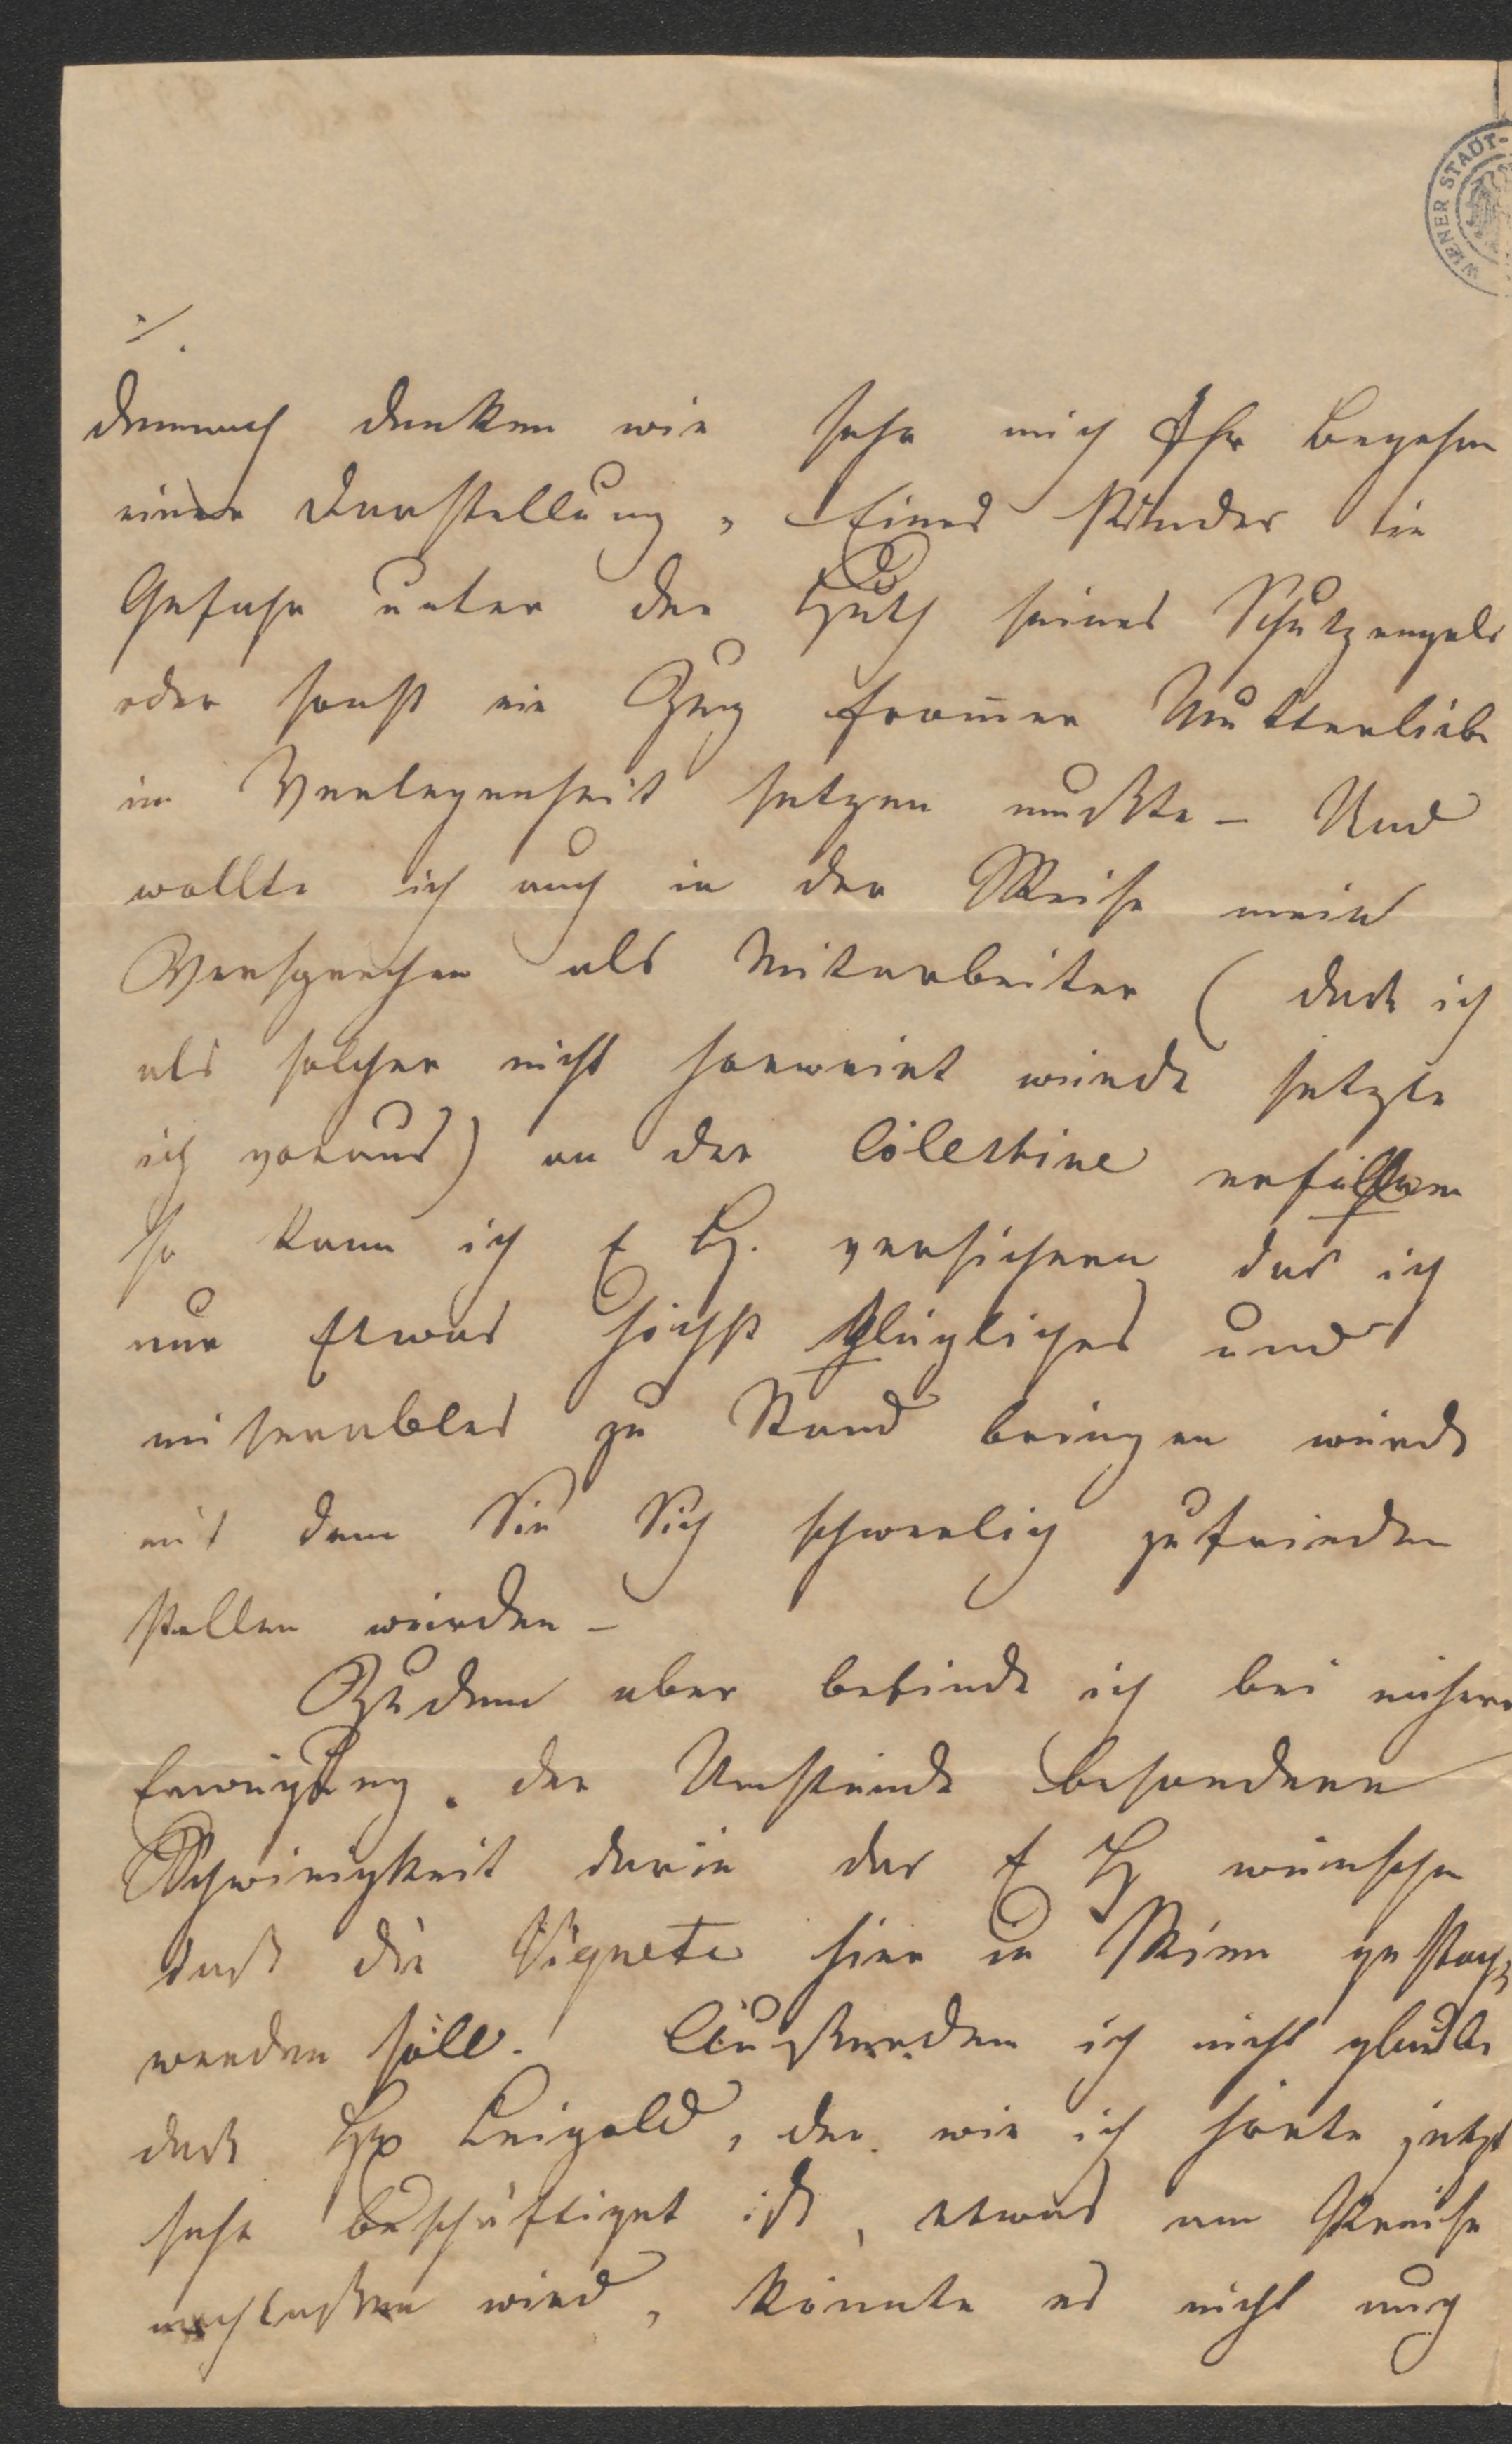 WIENER STADT-
./.
demnach denken wie sehr mich Ihr Begehren
einer Darstellung „ Eines Kindes in
Gefahr unter der Huth seines Schutzengels
oder sonst ein Zug from̅er Mutterliebe
in Verlegenheit setzen mußte – Und
wollte ich auch in der Weise mein
Versprechen als Mitarbeiter ( daß ich
als solcher nicht honorirt würde setzte
ich voraus) an der Cölestine erfüllen
so kann ich E H. versichern das ich
nur Etwas höchst klägliches und
miserables zu Stand bringen würde
mit dem Sie Sich schwerlich zufrieden
stellen würden –
Zudem aber befinde ich bei näherer
Erwägung der Umstände besondere
Schwierigkeit darin das E H wünschen
daß die Vignete hier in Wien gestoch
werden soll. Außerdem ich nicht glaube
daß H Leigold, der wie ich hörte jetzt
sehr beschäftiget ist, etwas am Preise
nachlaßen wird, könnte es nicht